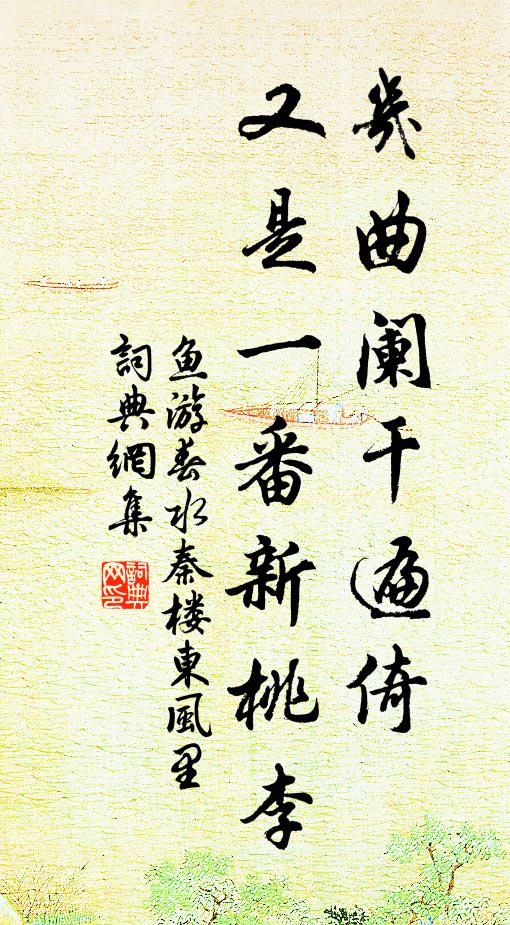 幾曲阑干遍倚
又是一番新桃李
魚游春水秦楼東風里
詞典網集
詞典网印